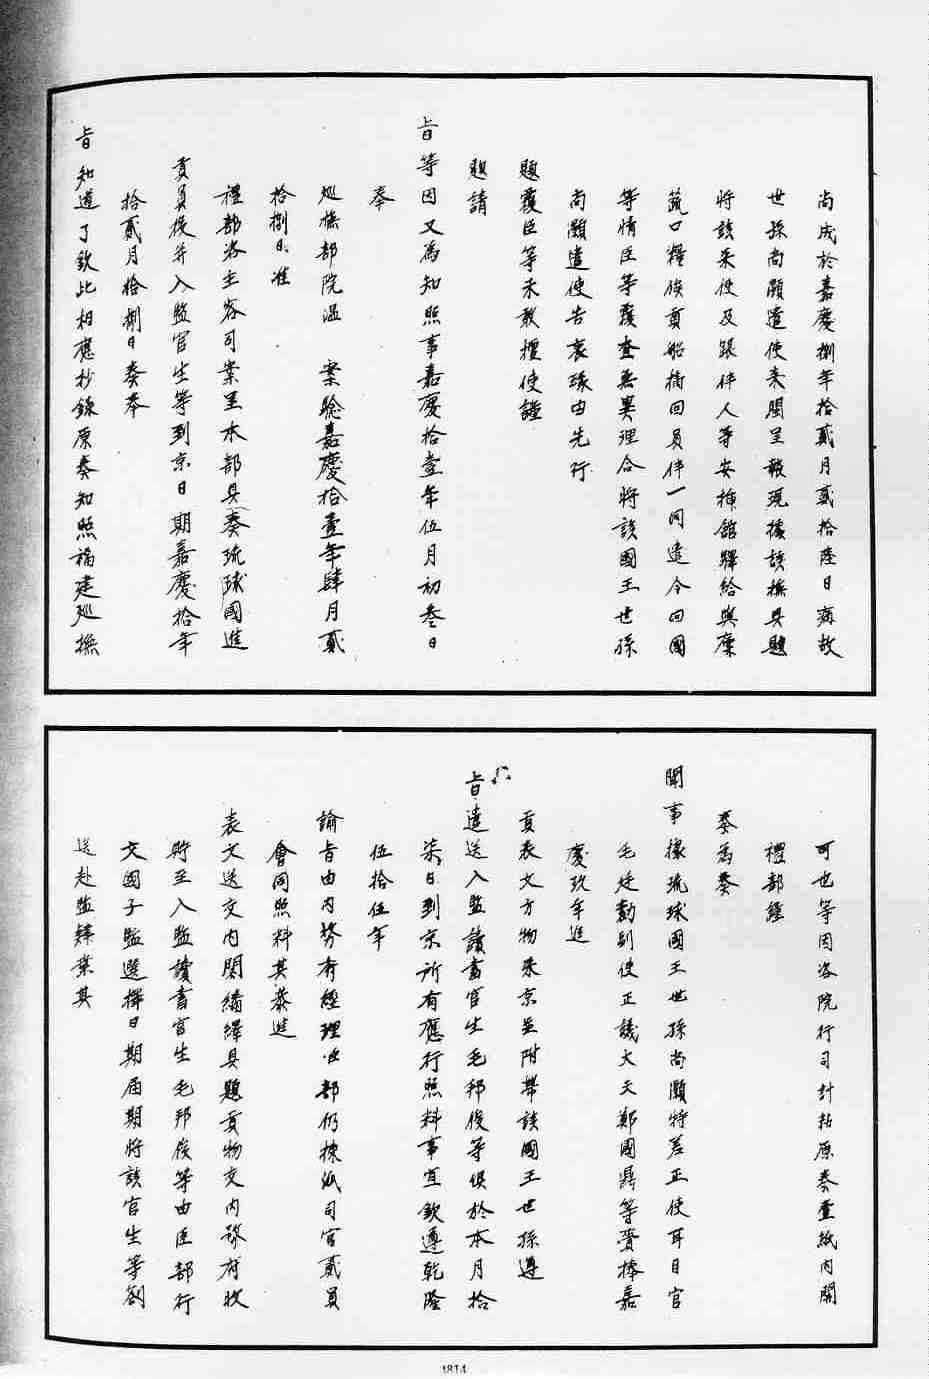 尚成於嘉慶捌年拾貳月貳拾陸日病故
世孫尚灝遣使來閩呈報現據該撫具題
將該來使及跟伴人等安揷館驛給與廩
蔬口糧俟貢船摘回員伴一同遣令回國
等情臣等覆查無異理合將該國王世孫
尚灝遣使吿哀緣由先行
題覆臣等未敢擅便謹
題請
旨等因又為知照事嘉慶拾壹年伍月初叁日
奉
巡撫部院溫 案驗嘉慶拾壹年肆月貳
拾捌日准
禮部咨主客司案呈本部具奏琉球國進
貢員役并入監官生等到京日期嘉慶拾年
拾貳月拾捌日奏奉
旨知道了欽此相應抄錄原奏知照福建巡撫
可也等因咨院行司計粘原奏壹紙內開
禮部謹
奏為奏
聞事據琉球國王世孫尚灝特差正使耳目官
毛廷勷副使正議大夫鄭國鼎等賫捧嘉
慶玖年進
貢表文方物來京並附帶該國王世孫遵
旨遣送入監讀書官生毛邦俊等俱於本月拾
柒日到京所有應行照料事宜欽遵乾隆
伍拾伍年
諭旨由內務府經理臣部仍揀派司官貳員
會同照料其恭進
表文送交內閣繙繹具題貢物交內務府收
貯至入監讀書官生毛邦俊等由臣部行
文國子監選擇日期屆期將該官生等劄
送赴監肄業其
1814